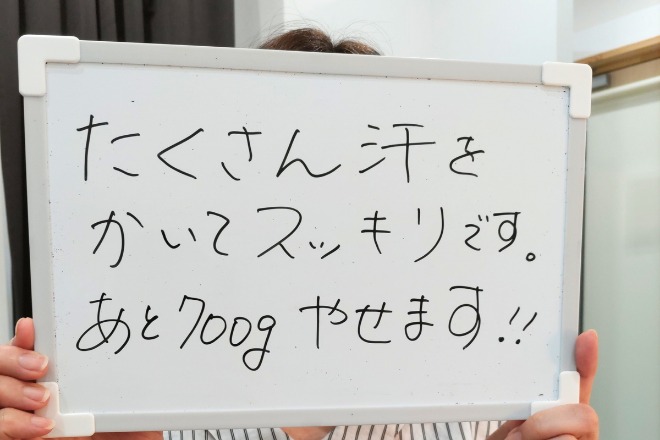 たくさん汗を
かいてスッキリです。
あと700gやせます!!